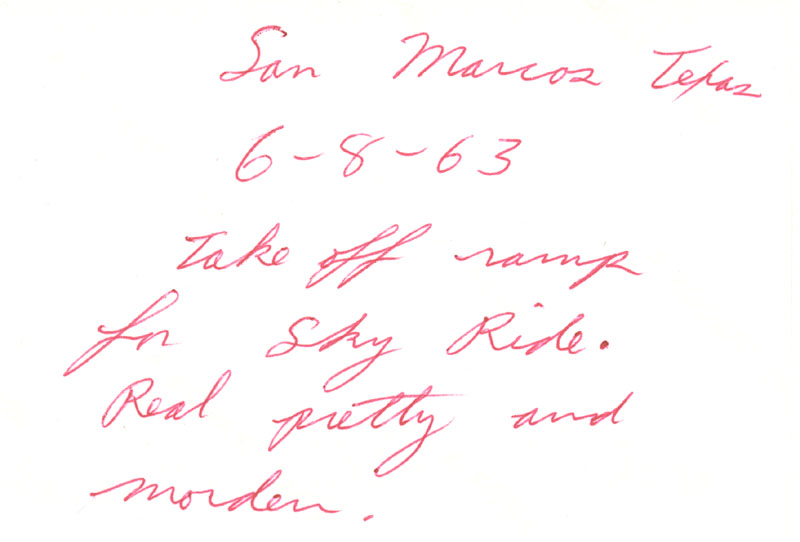 San Marcos Texas
6-8-63
Take off ramp
for Sky Ride.
Real pretty and
morden.